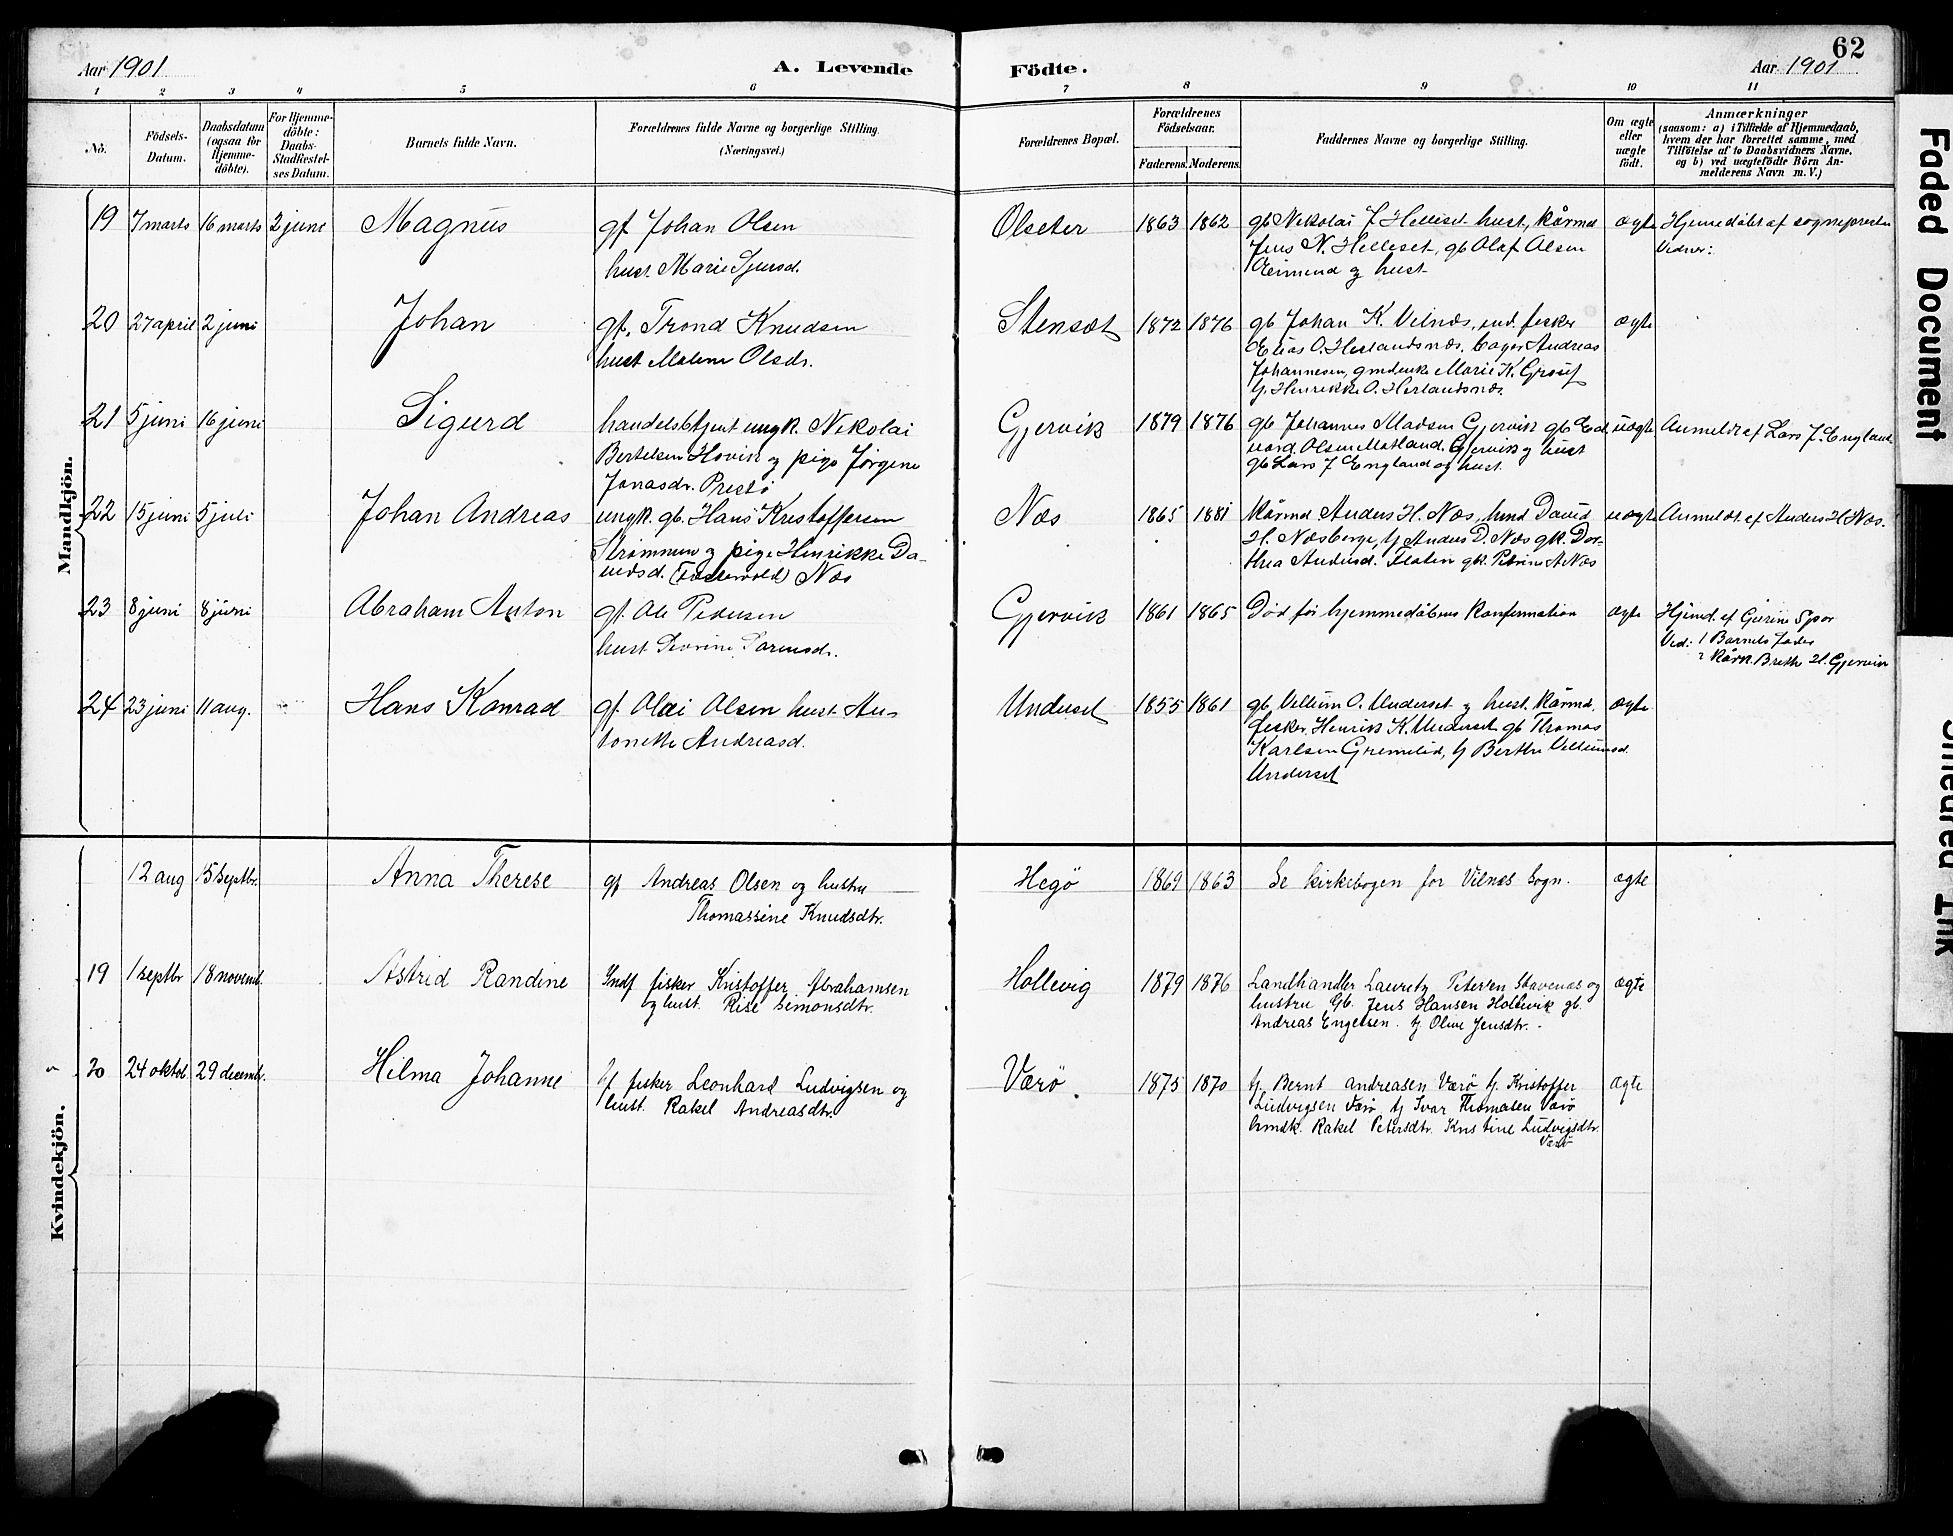 62
Aar 1901 A. Levende Födte. Aar 1901
1 2 3 4 5 6 7 8 9 10 11
No.
Födsels-
Datum.
Daabsdatum
(ogsaa for
Hjemme-
döbte).
For Hjemme-
döbte:
Daabs-
Stadfæstel-
ses Datum.
Barnets fulde Navn.
Forældrenes fulde Navne og borgerlige Stilling.
(Næringsvei.)
Forældrenes Bopæl.
Forældrenes
Födselsaar.
Faderens. Moderens.
Faddernes Navne og borgerlige Stilling.
Om ægte
eller
uægte
födt.
Anmærkninger
(saasom: a) i Tilfælde af Hjemmedaab,
hvem der har forrettet samme, med
Tilföielse af to Daabsvidners Navne,
og b) ved uægtefödte Börn An-
melderens Navn m. V.)
Mandkjön.
19 7 marts 16 marts 2 june Magnus gf Johan Olsen
hust. Marie Sjursd.
Olseter 1863 1862 gb Nikolai J. Helleset hust, kårmd
Jens N. Helleset, gb Olaf Olsen
og hust
ægte Hjemmedøbt af sognepresten
Vidner:
20 27 april 2 juni Johan gf. Trond Knudsen
hust Malene Olsdr.
Stensæt 1872 1876 gb Johan K. Vilnæs, ind. fisker
Elias O. Herlandsnæs, Andreas
Johannesen, Marie K.
Henrikke O. Herlandsnæs.
ægte
21 5 juni 16 juni Sigurd handelsbetjent ungk. Nikolai
Bertelsen Hovik og pige Jørgine
Jonasdr. Prestø
Gjervik 1879 1876 gb Johannes Madsen Gjervik gb Ed
vard Olsen Matland. Gjervik og hust
gb Lars J England og hust.
uægte Anmeldt af Lars J. England
22 15 juni 5 juli Johan Andreas ungk. gb. Hans Kristoffersen
Strømmen og pige Henrikke Da-
vidsd. Næs
Næs 1865 1881 kårmd Anders H. Næs, David
H. Næsberge, Anders D. Næs gk. Dor-
thea Andersd. gk. Petrine A Næs
uægte Anmeldt af Anders H. Næs.
23 8 juni 8 juni Abraham Anton gf. Ole Pedersen
hust
Gjervik 1861 1865 Død før hjemmedåbens konfirmation ægte Hjemd. af
Vid: 1 Barnets fader
2 H. Gjervik
24 23 juni 11 aug. Hans Konrad gf. Olai Olsen hust An-
tonette Andreasd.
Underset 1855 1861 gb. Villum O. Underset og hust. kårmd.
fisker Henrik K. Underset gb Thomas
Karlsen Grimelid, Berthe Villumsd.
Underset
ægte
Kvindekjön.
12 aug 15 septbr. Anna Therese gf Andreas Olsen og hustru
Thomassine Knudsdtr.
Hegø 1869 1863 Se kirkebogen for Vilnæs Sogn. ægte
19 1 septbr 18 novemb. Astrid Randine Indf fisker Kristoffer Abrahamsen
og hust. Rise Simonsdtr.
Hollevig 1879 1876 Landhandler Lauretz Petersen Stavenæs og
hustru Gb. Jens Hansen Hollevik gb.
Andreas Engelsen. Olive Jensdtr.
ægte
20 24 oktob. 29 decemb. Hilma Johanne fisker Leonhard Ludvigsen og
hust. Rakel Andreasdtr.
Værø. 1875 1870 Bernt Andreasen Værø Kristoffer
Ludvigsen Værø Ivar Thomasen Værø
Rakel Petersdtr. Kristine Ludvigsdtr.
Værø
ægte
Faded Document
Smeared Ink